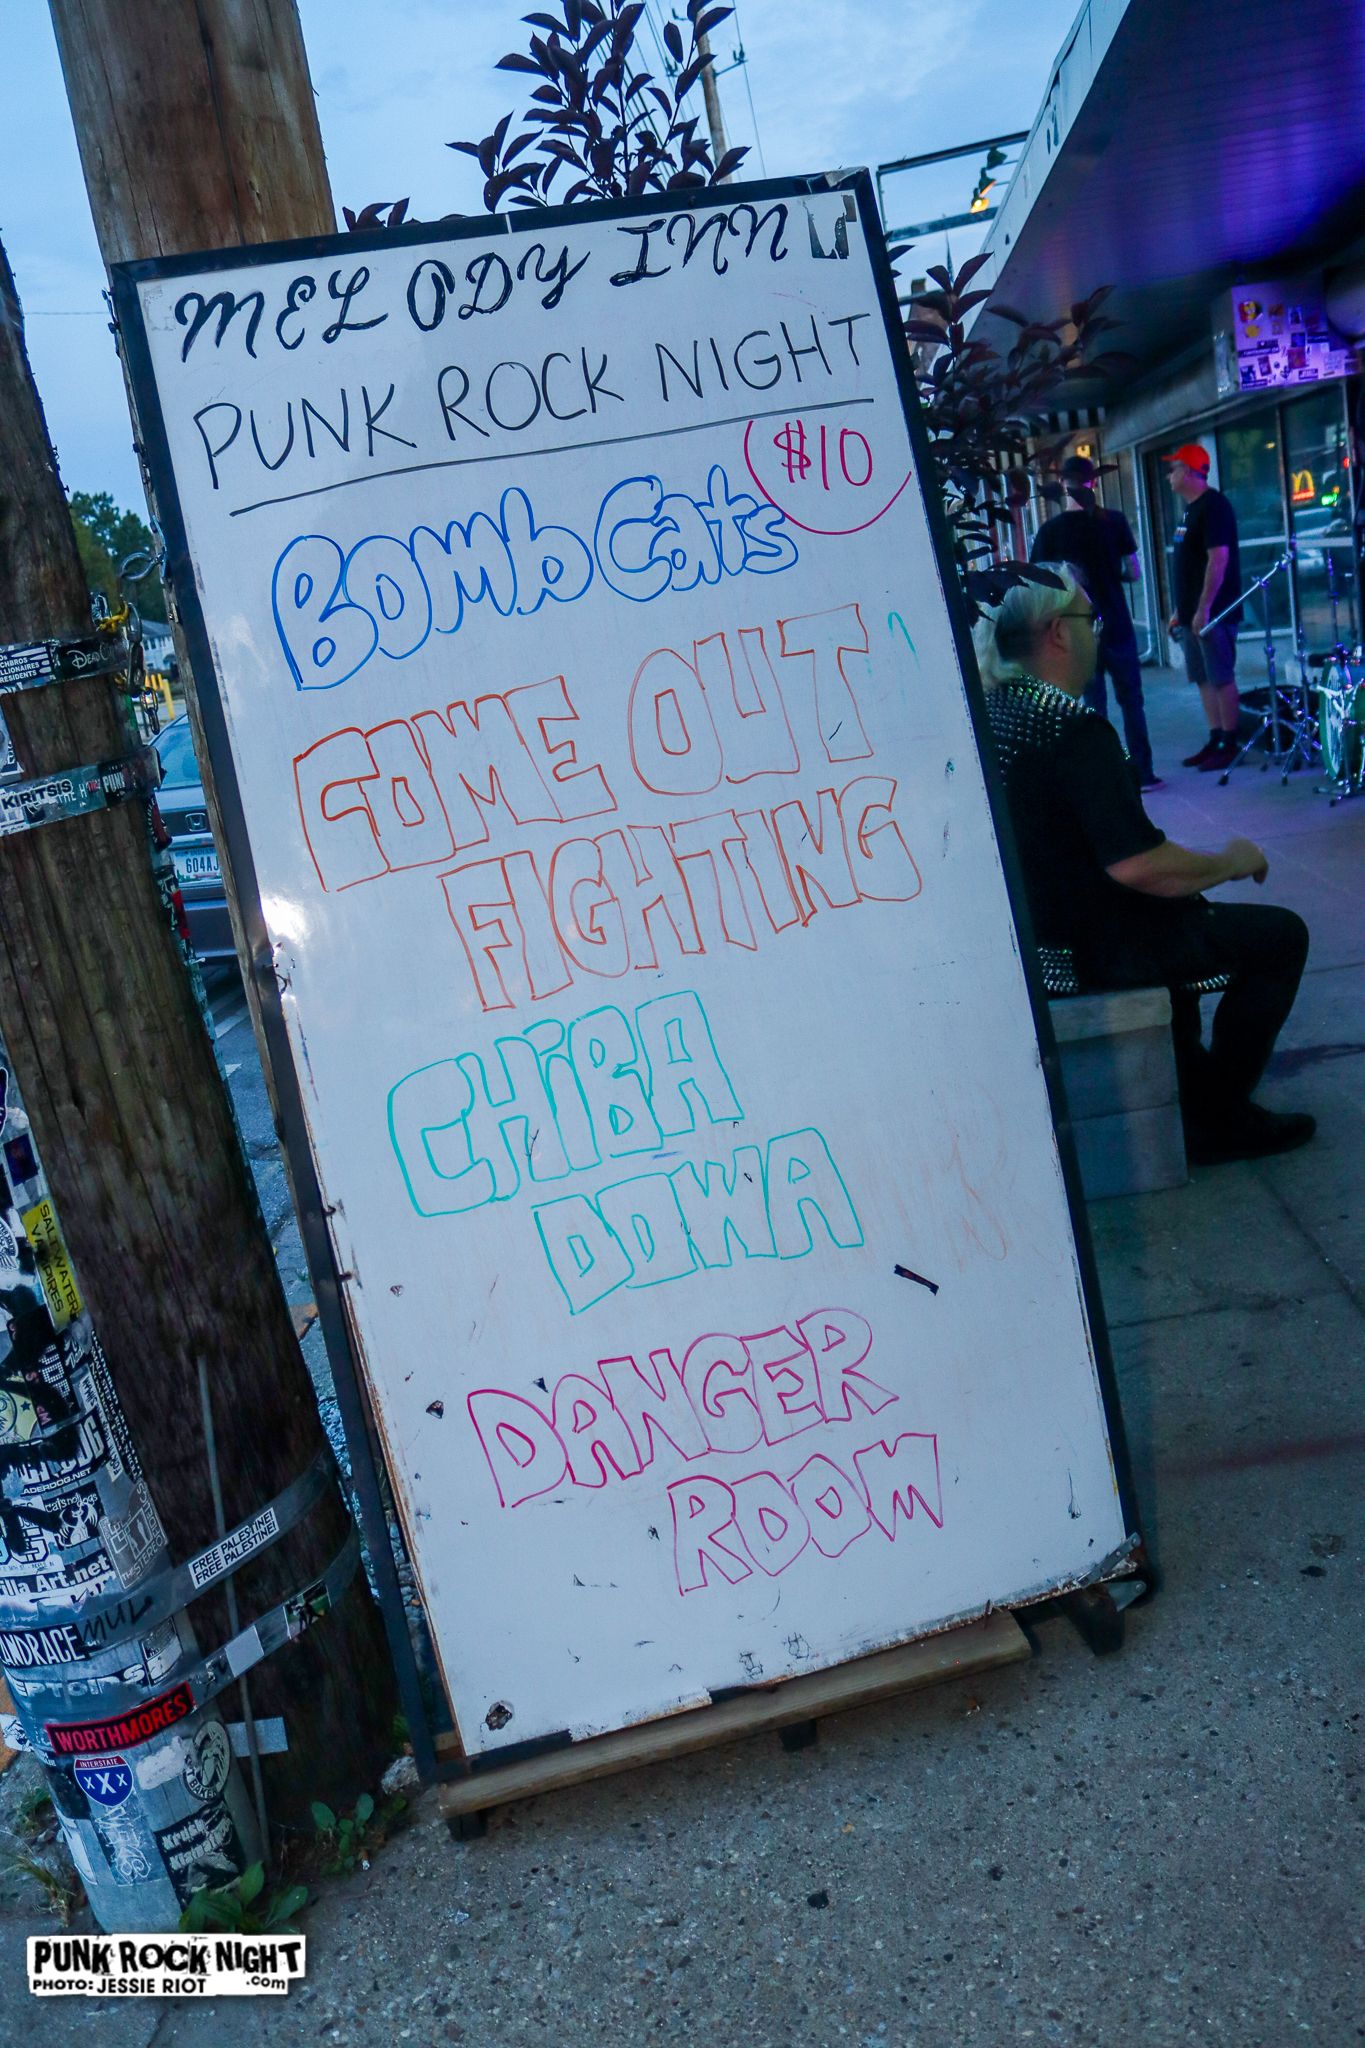 MELODY INN
PUNK ROCK NIGHT
$10
BOMB Cats
COME OUT
FIGHTING
CHiBA
DOWA
DANGER
ROOM
KIRITSIS
PUNK
604AJ
SALTWATER
VAMPIRES
FREE PALESTINE!
FREE PALESTINE!
WORTHMORES
INTERSTATE
XXX
PUNK ROCK NIGHT
.com
PHOTO: JESSIE RIOT